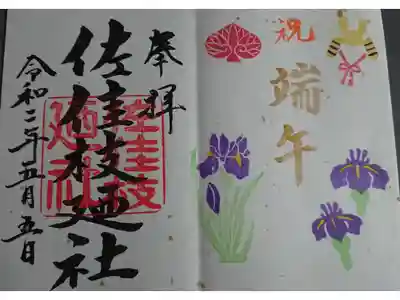 祝
端午
奉拝
佐佳枝廼社
佐佳枝
廼社
令和二年五月五日